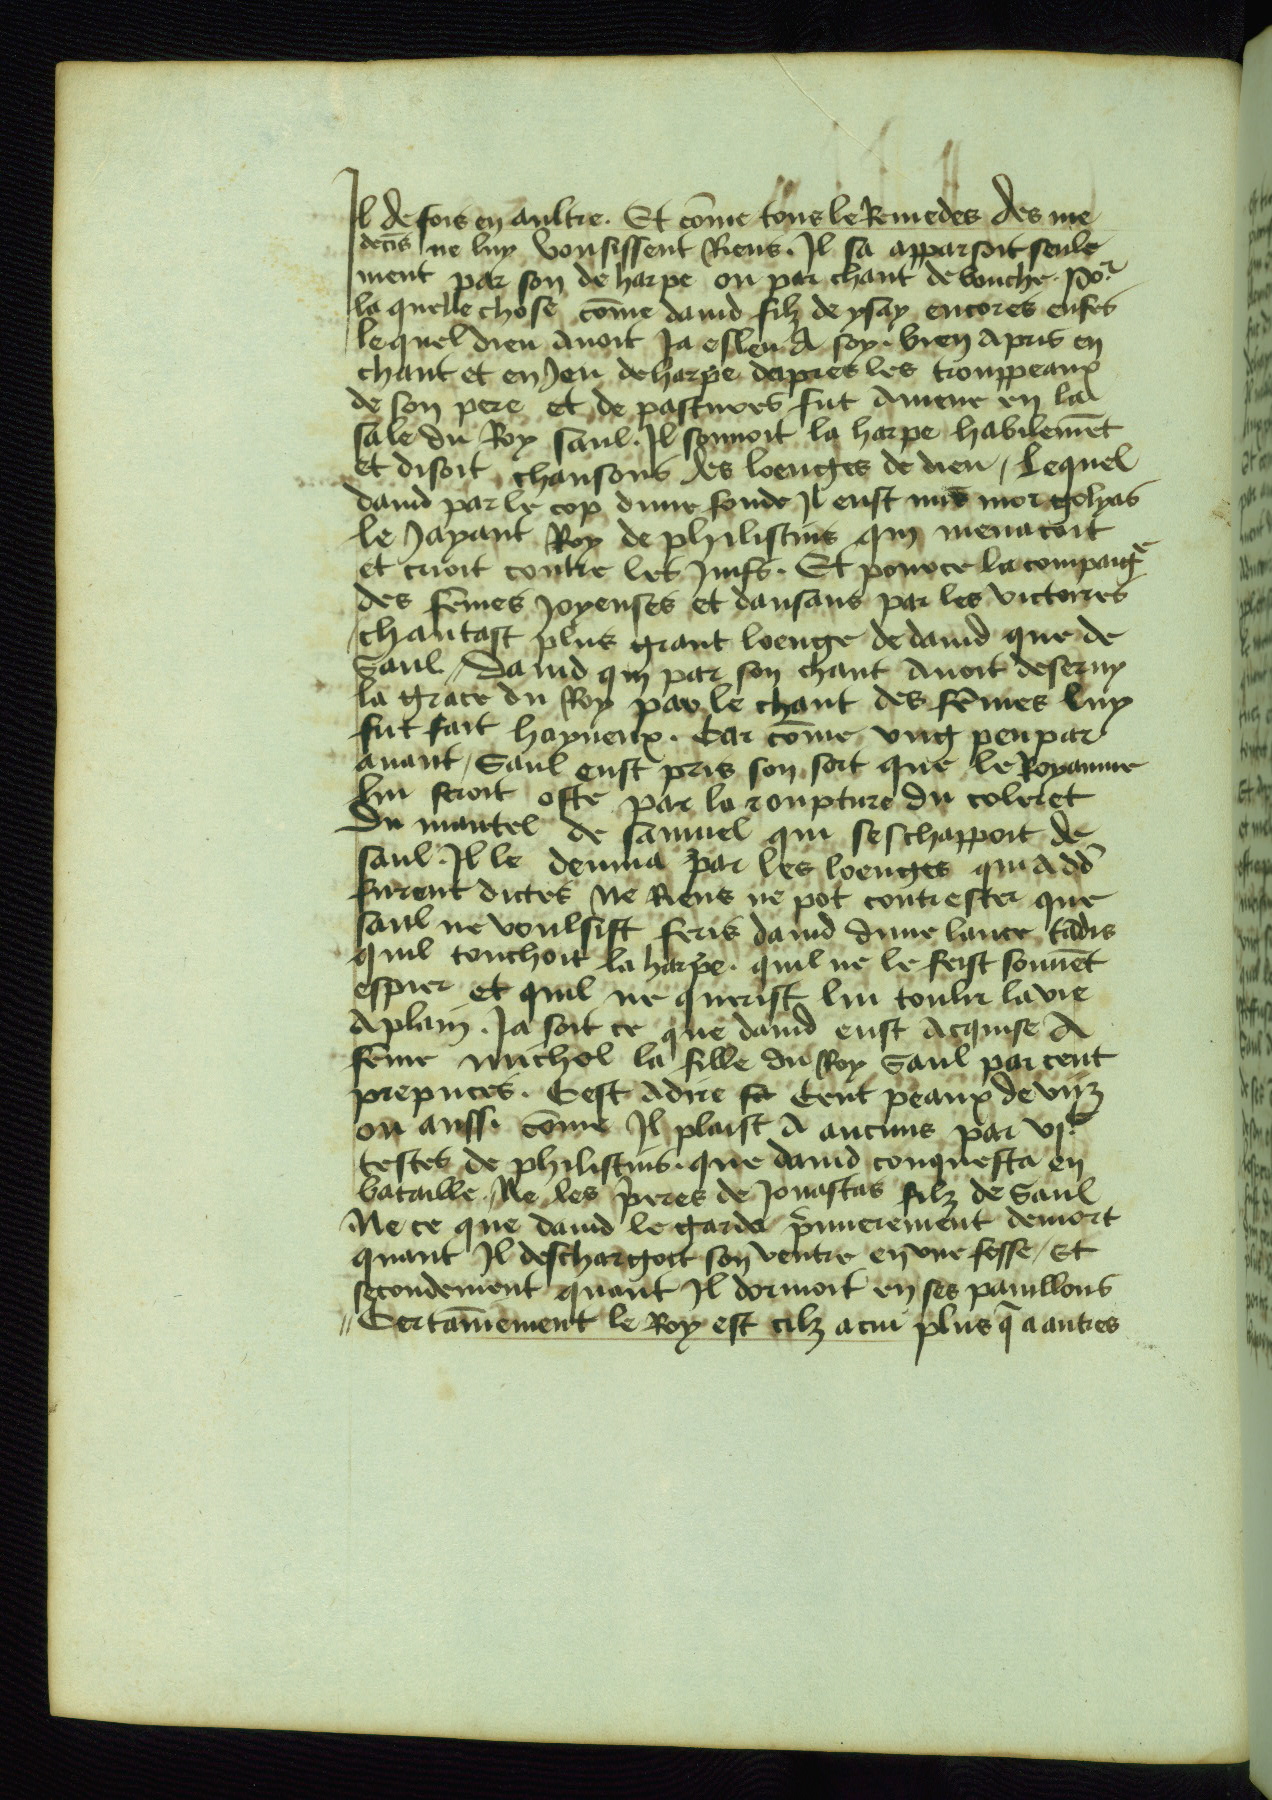 Il de fois en aultre. Et cōme tous le Remedes des me
decīs ne luy vousissent Riens. Il sa apparsoit seule
ment par son de harpe ou par chant de bouche. Por
la quelle chose cōme dauid filz de ysay encores enfes
lequel dieu auoit Ja esleu A soy. bien Apris en
chant et en Jeu de harpe depres les trouppeaux
de son pere et de pastures fut Amene en la
sale du Roy saul. Il sonnoit la harpe habilemēt
et disoit chansons des loenges de dieu / Lequel
dauid par le cop dune fonde Il eust mis mor golyas
le Jayant Roy de philistins qui menacoit
et crioit contre les Juifs. Et pource la compaige
des fēmes Joyeuses et dansans par les victoires
chantast plus grant loenge de dauid que de
Saul / Dauid qui par son chant Auoit deseruy
la grace du Roy par le chant des fēmes luy
fut fait hayneux. Car cōme ung peu par
auant / Saul eust pris son sort que le Royaume
lui seroit oste par la roupture du coleret
Du mantel de samuel qui seschappoit de
saul. Il le deuina par les loenges qui A dd
furent dictes Ne Riens ne pot contrester que
saul ne voulsist feris dauid dune lance tādis
quil touchoit la harpe. quil ne le feist souuēt
espier et quil ne querist lui toulir la vie
A plain. Ja soit ce que dauid eust Acquise A
fēme michol la fille du Roy Saul par cent
prepuces. Cest Adire Cent peaux de vitz
ou aussi cōme Il plaist A aucuns par vjc
testes de philistins. que dauid conquesta en
bataille. Ne les peres de Jonastas filz de Saul
Ne ce que dauid le garda p̄mierement de mort
quant Il deschargoit son ventre en vne fosse / Et
secondement quant Il dormoit en ses pauillons
// Certaīnement le Roy est cilz a cui plus q̄ a autres